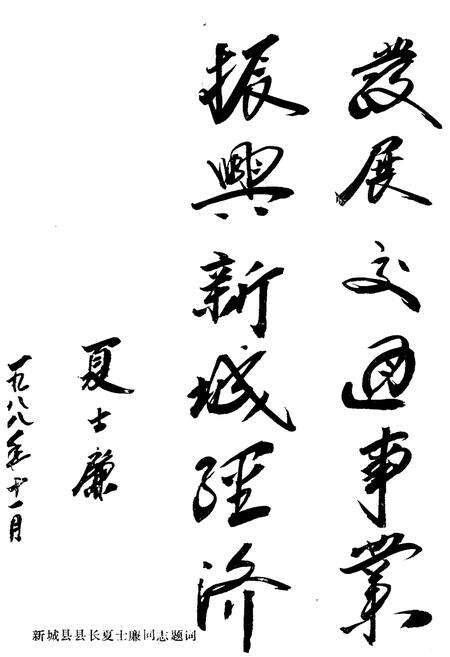 發展交通事業
振興新城經济
夏士廉
一九八八年十一月
新城县县长夏士廉同志题词